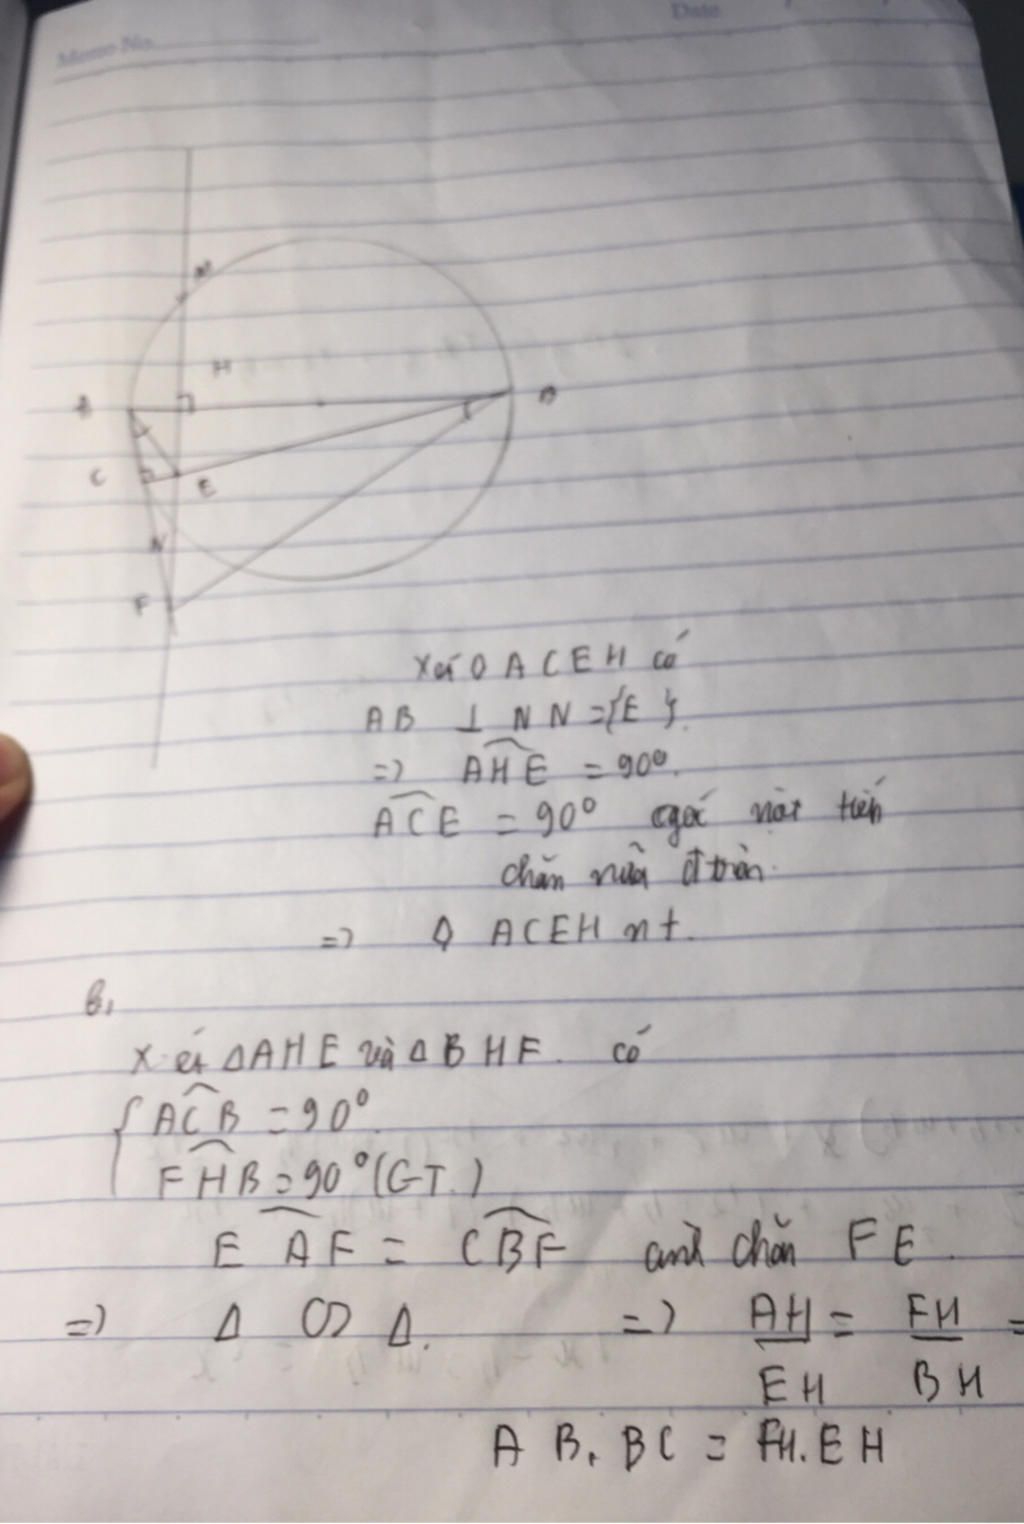 Memo No.
Date
M
H
A
B
C
E
N
F
Xét ◊ ACEH có
AB ⊥ NN = {E}.
=> AHE = 90°.
ACE = 90° cgóc nột tiếp
chắn nửa đ tròn.
=> ◊ ACEH nt.
b,
Xét ΔAHE và ΔBHF. có
{ ACB = 90°.
FHB = 90° (GT.)
EAF = CBF chắn FE.
=> Δ ∽ Δ. => AH/EH = FH/BH =
AB.BC = FH.EH